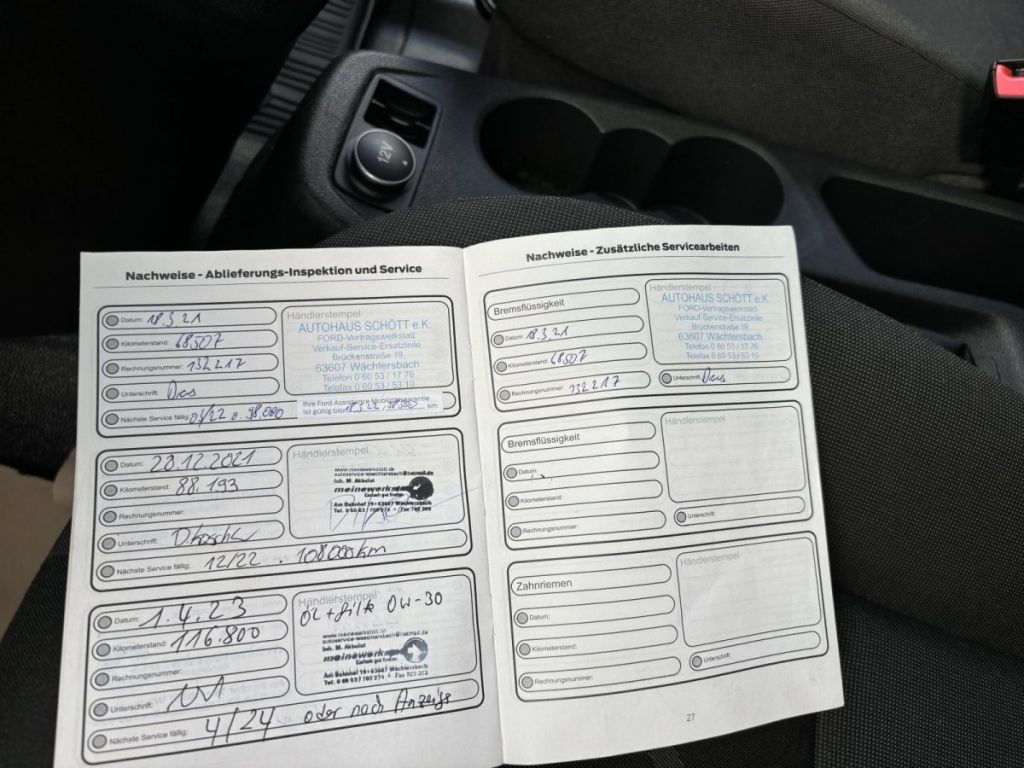 12V
Nachweise - Ablieferungs-Inspektion und Service
Datum: 18.3.21
Kilometerstand: 68507
Rechnungsnummer: 132217
Unterschrift:
Nächste Service fällig: 03/22 o. 98.000
Händlerstempel
AUTOHAUS SCHÖTT e.K.
FORD-Vertragswerkstatt
Verkauf-Service-Ersatzteile
Brückenstraße 19
63607 Wächtersbach
Telefon 0 60 53 / 17 76
Telefax 0 60 53 / 53 10
Ihre Ford Assistance Mobilitätsgarantie
ist gültig bis 18.3.22 98.000 km
Datum: 23.12.2021
Kilometerstand: 88.193
Rechnungsnummer:
Unterschrift:
Nächste Service fällig: 12/22 . 108000km
Händlerstempel
www.meinewerkstatt.de
autoservice-waechtersbach@hotmail.de
Inh. M. Akbulut
meinewerkstatt
Einfach gut finden.
Am Bahnhof 19 • 63607 Wächtersbach
Datum: 1.4.23
Kilometerstand: 116.800
Rechnungsnummer:
Unterschrift:
Nächste Service fällig: 4/24 oder nach Anzeige
Händlerstempel
Öl + filte 0W-30
www.meinewerkstatt.de
autoservice-waechtersbach@hotmail.de
Inh. M. Akbulut
Einfach gut finden.
Am Bahnhof 19 • 63607 Wächtersbach
Nachweise - Zusätzliche Servicearbeiten
Bremsflüssigkeit
Datum: 18.3.21
Kilometerstand: 68507
Rechnungsnummer: 132217
Unterschrift:
Händlerstempel
AUTOHAUS SCHÖTT e.K.
FORD-Vertragswerkstatt
Verkauf-Service-Ersatzteile
Brückenstraße 19
63607 Wächtersbach
Telefon 0 60 53 / 17 76
Telefax 0 60 53 / 53 10
Bremsflüssigkeit
Datum:
Kilometerstand:
Rechnungsnummer:
Unterschrift:
Händlerstempel
Zahnriemen
Datum:
Kilometerstand:
Rechnungsnummer:
Unterschrift:
Händlerstempel
27